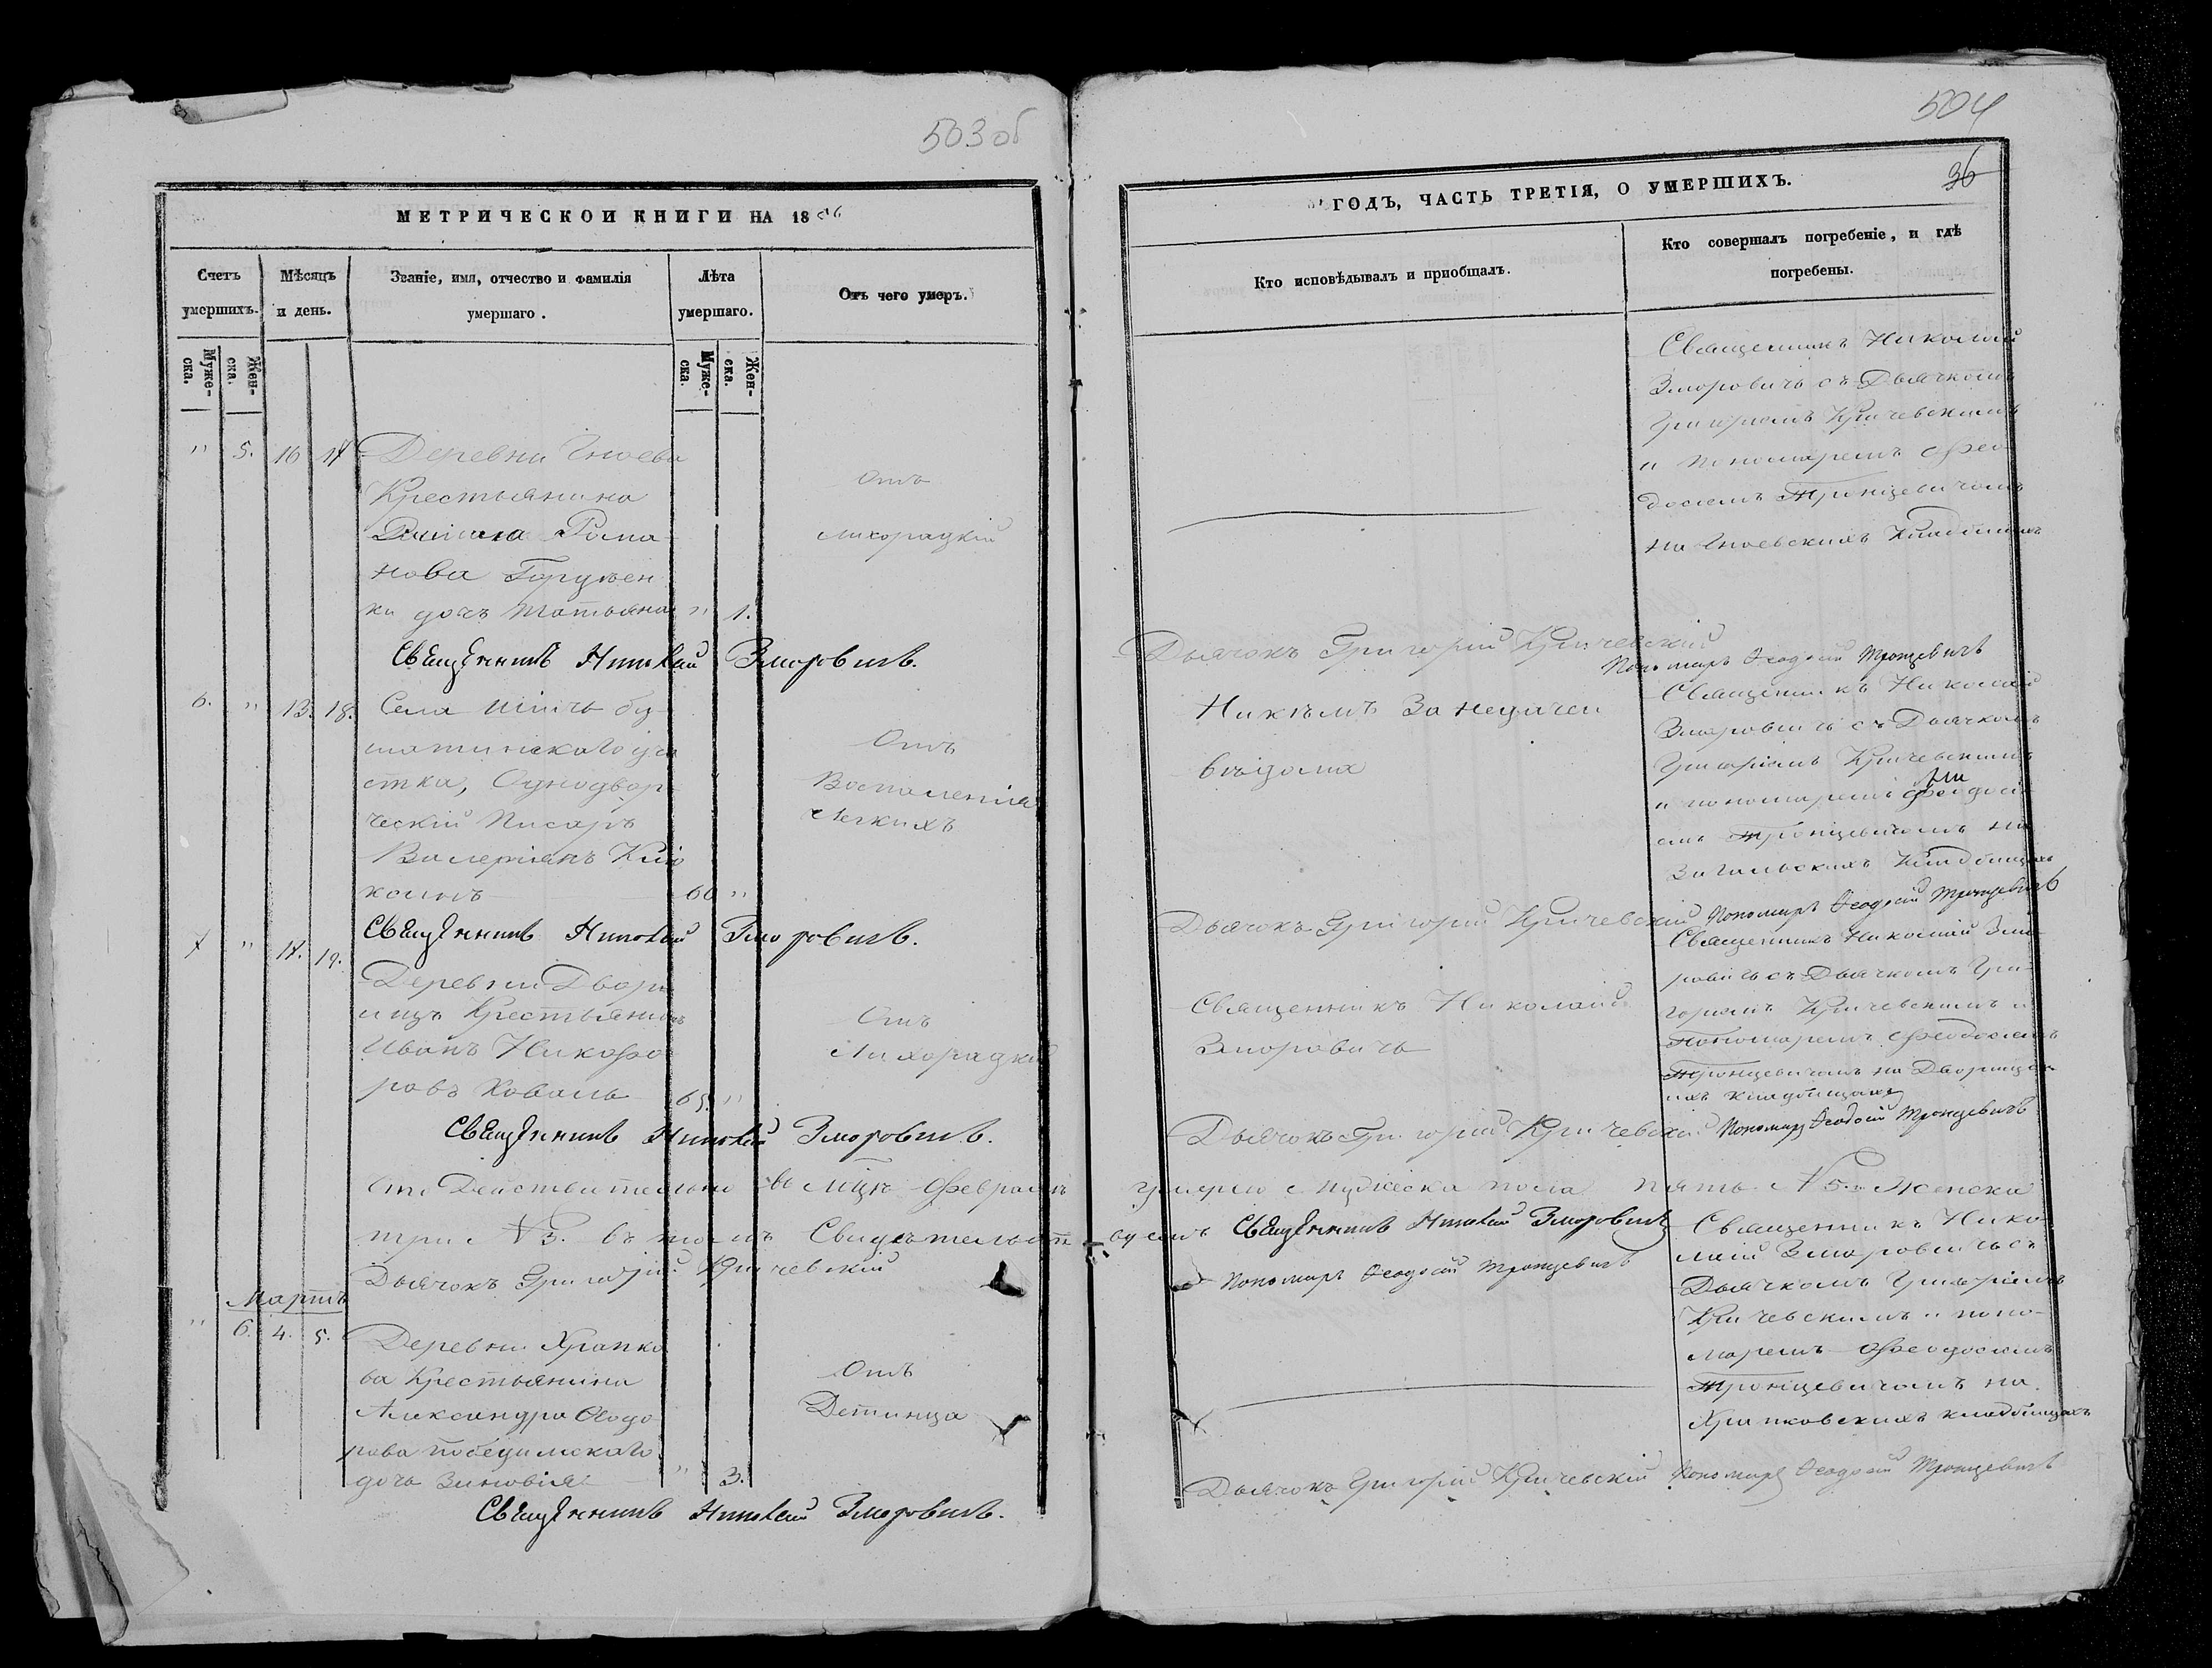 503 об
МЕТРИЧЕСКОЙ КНИГИ НА 18
Счетъ умершихъ.
Муже-ска.
Жен-ска.
Мѣсяцъ и день.
Званіе, имя, отчество и фамилія умершаго.
Лѣта умершаго.
Муже-ска.
Жен-ска.
Отъ чего умеръ.
" 5. 16 17
Деревни Гноева
Крестьянина
Рома
нова
ки дочь Татьяна " 1.
Отъ
лихорадкій
Священникъ Николай Зморовичъ.
6. " 13. 18.
Села
стка, Однодвор
ческій Писарь
Валеріанъ
60 "
Отъ
Воспаленія
легкихъ
Священникъ Николай Зморовичъ.
7 " 17. 19.
Деревни Двори
ищъ Крестьянинъ
Иванъ Никифо
ровъ Коваль 65. "
Отъ
Лихорадкій
Священникъ Николай Зморовичъ.
Что Действительно въ мцѣ Февралѣ
три № 3. въ томъ Свидетельст
Дьячокъ Григорій Кричевскій
Мартъ
" 6. 4. 5.
Деревни Храпко
ва Крестьянина
Александра Ѳеодо
рова
дочь Зиновія " 3.
Отъ
Детинца
Священникъ Николай Зморовичъ.
504
36
ГОДЪ, ЧАСТЬ ТРЕТІЯ, О УМЕРШИХЪ.
Кто исповѣдывалъ и пріобщалъ.
Кто совершалъ погребеніе, и гдѣ
погребены.
Священникъ Николай
Зморовичъ съ Дьячкомъ
Григоріемъ Кричевскимъ
и Пономаремъ Фео
досіемъ Тронцевичомъ
на Гноевскихъ Кладбищахъ
Дьячокъ Григорій Кричевскій
Пономарь Ѳеодосій Тронцевичъ
Никѣмъ За недачеи
вѣдома
Священникъ Николай
Зморовичъ съ Дьячкомъ
Григоріемъ Кричевскимъ
и пономаремъ Феодосі
емъ Тронцевичомъ на
Загальскихъ Кладбищахъ
Дьячокъ Григорій Кричевскій
Пономарь Ѳеодосій Тронцевичъ
Священникъ Николай
Зморовичъ
Священникъ Николай Змо
ровичъ съ Дьячкомъ Гри-
горіемъ Кричевскимъ и
Пономаремъ Феодосіемъ
Тронцевичомъ на Дворищан
ихъ кладбищахъ
Дьячокъ Григорій Кричевскій
Пономарь Ѳеодосій Тронцевичъ
умерло Мужеска пола пять № 5. Женска
вуемъ Священникъ Николай Зморовичъ
Пономарь Ѳеодосій Тронцевичъ
Священникъ Нико
лай Зморовичъ съ
Дьячкомъ Григоріемъ
Кричевскимъ и поно-
маремъ Феодосіемъ
Тронцевичомъ на
Храпковскихъ кладбищахъ
Дьячокъ Григорій Кричевскій
Пономарь Ѳеодосій Тронцевичъ